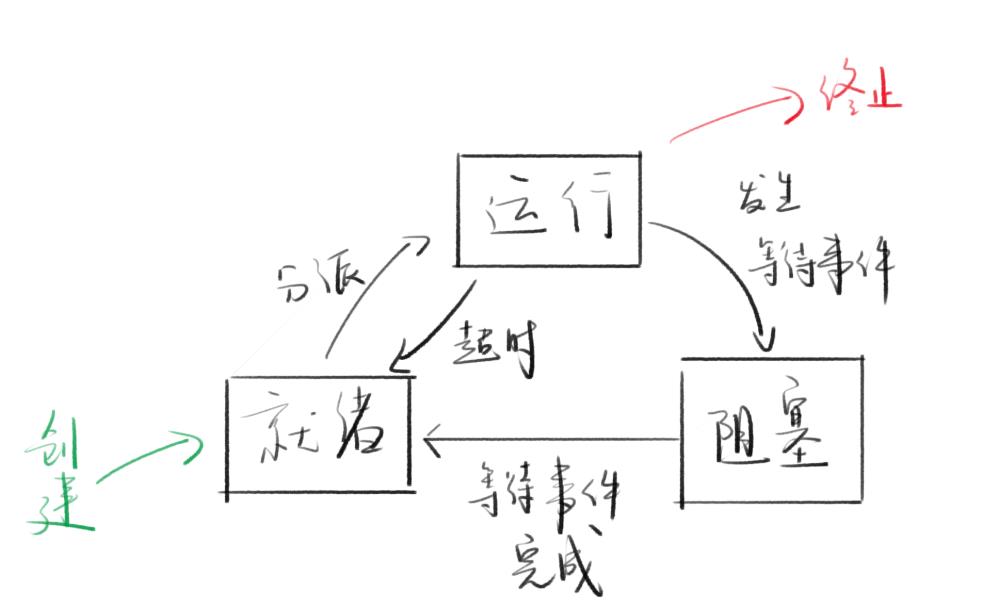 终止
运行
发生
等待事件
分派
超时
就绪
阻塞
创
建
等待事件
完成